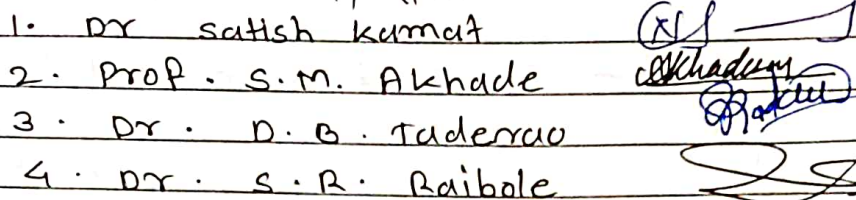 1. Dr satish kamat
2. Prof. S.M. Akhade
3. Dr. D.B. Taderao
4. Dr. S.R. Raibole